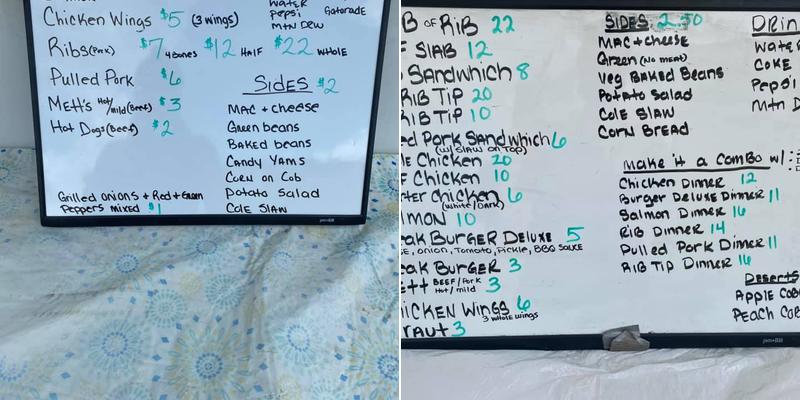 Water
Chicken Wings $5 (3 wings) Pepsi Gatorade
Mtn Dew
Ribs (Pork) $7 4 bones $12 Half $22 whole
Pulled Pork $6
Mett's Hot/mild (Beef) $3
Hot Dogs (Beef) $2
Sides $2
Mac + cheese
Green beans
Baked beans
Candy Yams
Corn on Cob
Potato Salad
Cole Slaw
Grilled onions + Red + Green
Peppers mixed $1
B of Rib 22
F Slab 12
Sandwhich 8
Rib Tip 20
Rib Tip 10
ed Pork Sandwhich 6
(w/ Slaw on Top)
le Chicken 20
F Chicken 10
rter Chicken 6
(White/Dark)
lmon 10
eak Burger Deluxe 5
E, Onion, Tomato, Pickle, BBQ Sauce
eak Burger 3
ett Beef/Pork Hot/mild 3
hicken Wings 6
3 whole wings
raut 3
Sides 2.50
Mac + cheese
Green (No meat)
Veg Baked Beans
Potato Salad
Cole Slaw
Corn Bread
Drin
Wate
Coke
Pepsi
Mtn D
Make it a Combo w/:
Chicken Dinner 12
Burger Deluxe Dinner 11
Salmon Dinner 16
Rib Dinner 14
Pulled Pork Dinner 11
Rib Tip Dinner 16
Deserts
Apple Cob
Peach Cob